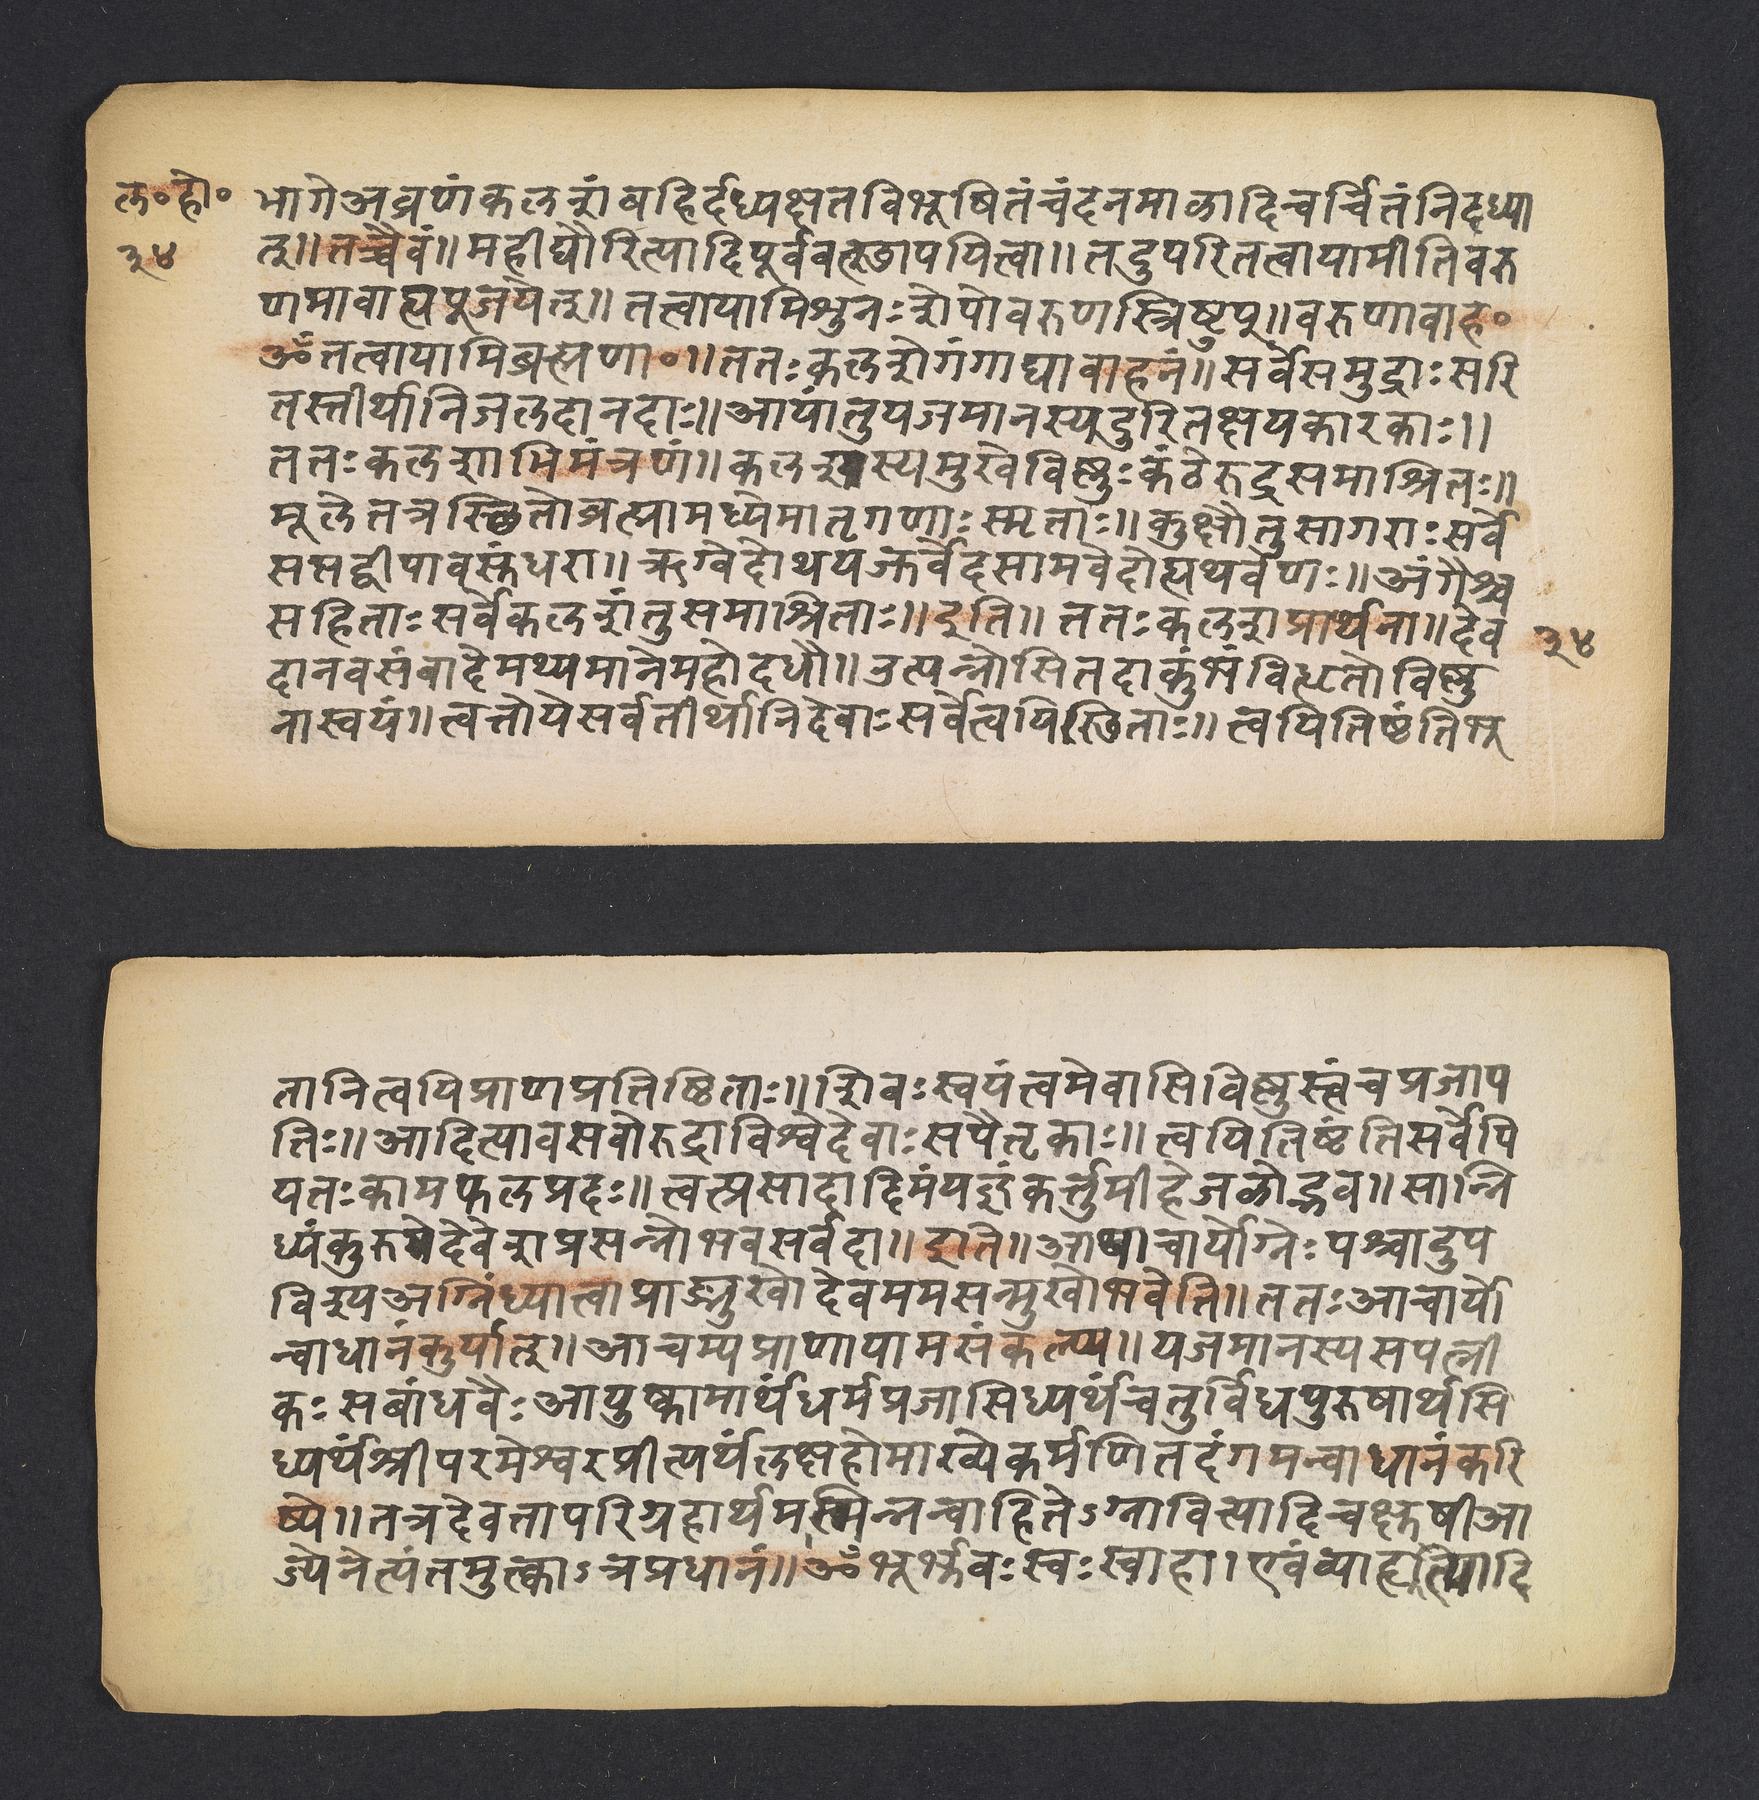 ल॰हो॰
३४
भागेअव्रणंकलशंबहिर्दध्यक्षतविभूषितंचंदनमाळादिचर्चितंनिदध्या
त्॥तच्चैवं॥महीद्यौरित्यादिपूर्ववत्स्थापयित्वा॥तदुपरितत्वायामीतिवरु
णमावाह्यपूजयेत्॥तत्त्वायामिशुनःशेपोवरुणस्त्रिष्टुप्॥वरुणावाह॰
ॐतत्वायामिब्रह्मणा॰॥ततःकलशेगंगाद्यावाहनं॥सर्वेसमुद्राःसरि
तस्तीर्थानिजलदानदाः॥आयांतुयजमानस्यदुरितक्षयकारकाः॥
ततःकलशाभिमंत्रणं॥कलशस्यमुखेविष्णुःकंठेरुद्रसमाश्रितः॥
मूलेतत्रस्थितोब्रह्मामध्येमातृगणाःस्मृताः॥कुक्षौतुसागराःसर्वे
सप्तद्वीपावसुंधरा॥ऋग्वेदोथयजुर्वेदसामवेदोह्यथर्वणः॥अंगैश्च
सहिताःसर्वेकलशंतुसमाश्रिताः॥इति॥ततःकलशप्रार्थना॥देव
३४
दानवसंवादेमथ्यमानेमहोदधौ॥उत्पन्नोसितदाकुंभंविधृतोविष्णु
नास्वयं॥त्वत्तोयेसर्वतीर्थानिदेवाःसर्वेत्वयिस्थिताः॥त्वयितिष्ठंतिभू
तानित्वयिप्राणप्रतिष्ठिताः॥शिवःस्वयंत्वमेवासिविष्णुस्त्वंचप्रजाप
तिः॥आदित्यावसवोरुद्राविश्वेदेवाःसपैतृकाः॥त्वयितिष्ठंतिसर्वेपि
यतःकामफलप्रदः॥त्वत्प्रसादादिमंयज्ञंकर्त्तुमीहेजळोद्भव॥सान्नि
ध्यंकुरुमेदेवेशप्रसन्नोभवसर्वदा॥इति॥अथाचार्योग्नेःपश्चादुप
विश्यअग्निंध्यात्वाप्राङ्मुखोदेवममसन्मुखोभवेति॥ततःआचार्यो
न्वाधानंकुर्यात्॥आचम्यप्राणायामसंकल्प्य॥यजमानस्यसपत्नी
कःसबांधवैःआयुष्कामार्थधर्मप्रजासिध्यर्थंचतुर्विधपुरुषार्थसि
ध्यर्थंश्रीपरमेश्वरप्रीत्यर्थंलक्षहोमाख्येकर्मणितदंगमन्वाधानंकरि
ष्ये॥तत्रदेवतापरिग्रहार्थमस्मिन्नन्वाहितेऽग्नावित्यादिचक्षुषीआ
ज्येनेत्यंतमुक्त्वाऽत्रप्रधानं॥ॐभूर्भुवःस्वःस्वाहा।एवंव्याहृतित्यादि